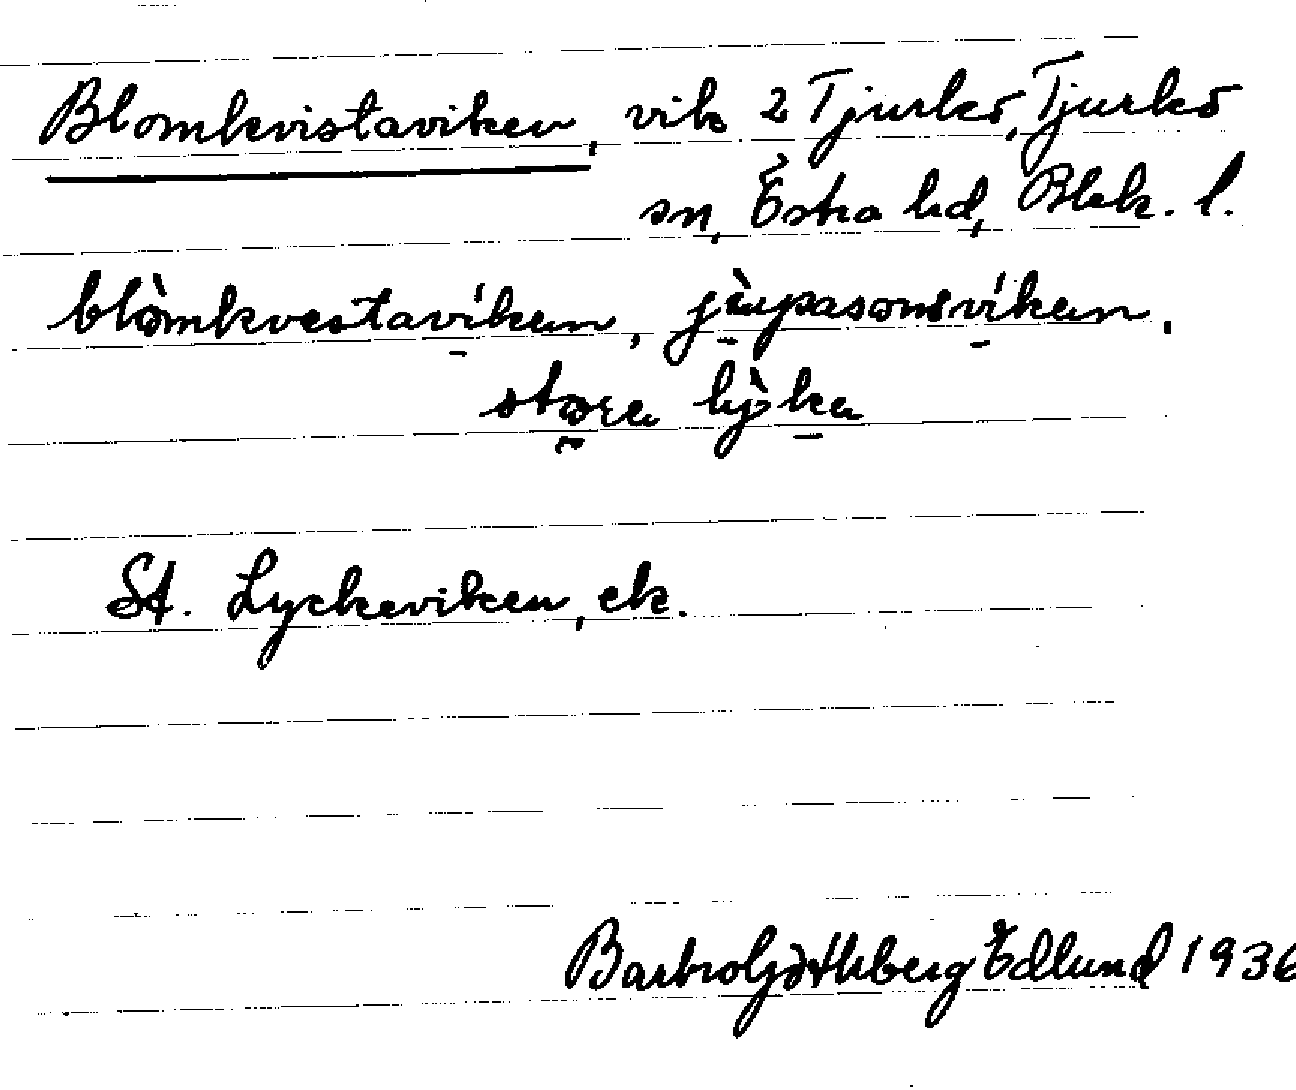 Blomkvistaviken, vik 2 Tjurkö, Tjurkö
sn, Östra hd, Blek. l.
blòmkvestavíken, jèpasonsvíken,
stora lỳka
St. Lyckeviken, ek.
Barbro Götheberg Edlund 1936